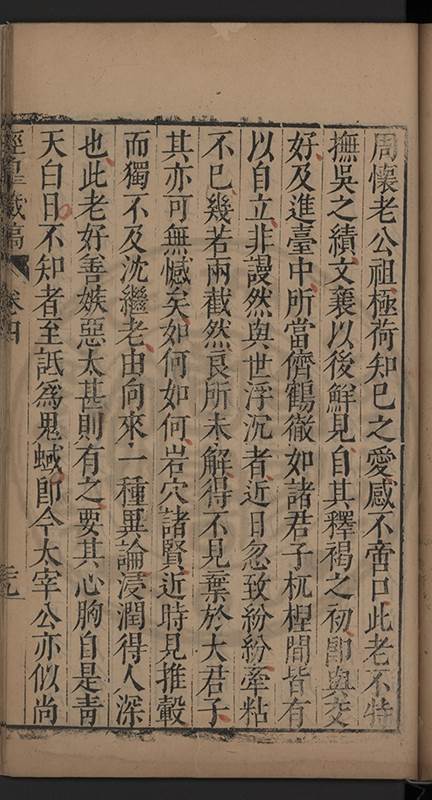 周懷老公祖極荷知巳之愛感不啻口此老不特
撫吳之績文襄以後鮮見自其釋褐之初卽與交
好及進臺中所當儕鶴徹如諸君子杌桯間皆有
以自立非謾然與世浮沉者近日忽致紛紛牽粘
不巳幾若兩截然良所未解得不見棄於大君子
其亦可無憾矣如何如何岩穴諸賢近時見推轂
而獨不及沈繼老由向來一種異論浸潤得人深
也此老好善嫉惡太甚則有之要其心胸自是靑
天白日不知者至詆爲鬼蜮卽今太宰公亦似尚
涇臯藏稿 卷四